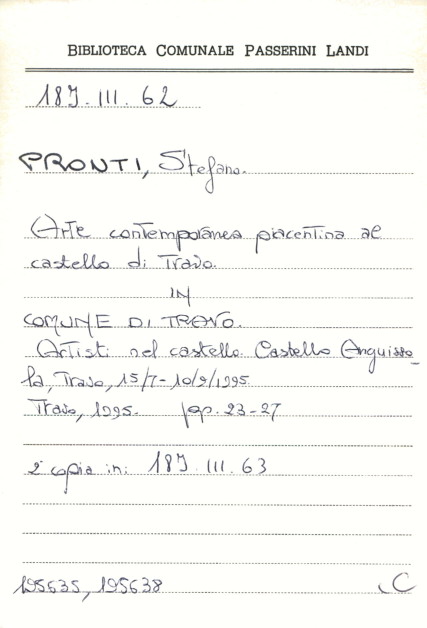 BIBLIOTECA COMUNALE PASSERINI LANDI
18J.III.62
PRONTI, Stefano.
Arte contemporanea piacentina al
castello di Travo.
IN
COMUNE DI TRAVO.
Artisti nel castello. Castello Anguisso-
la, Travo, 15/7-10/9/1995.
Travo, 1995. pp. 23-27
2ª copia in: 18J.III.63
195635, 195638
C